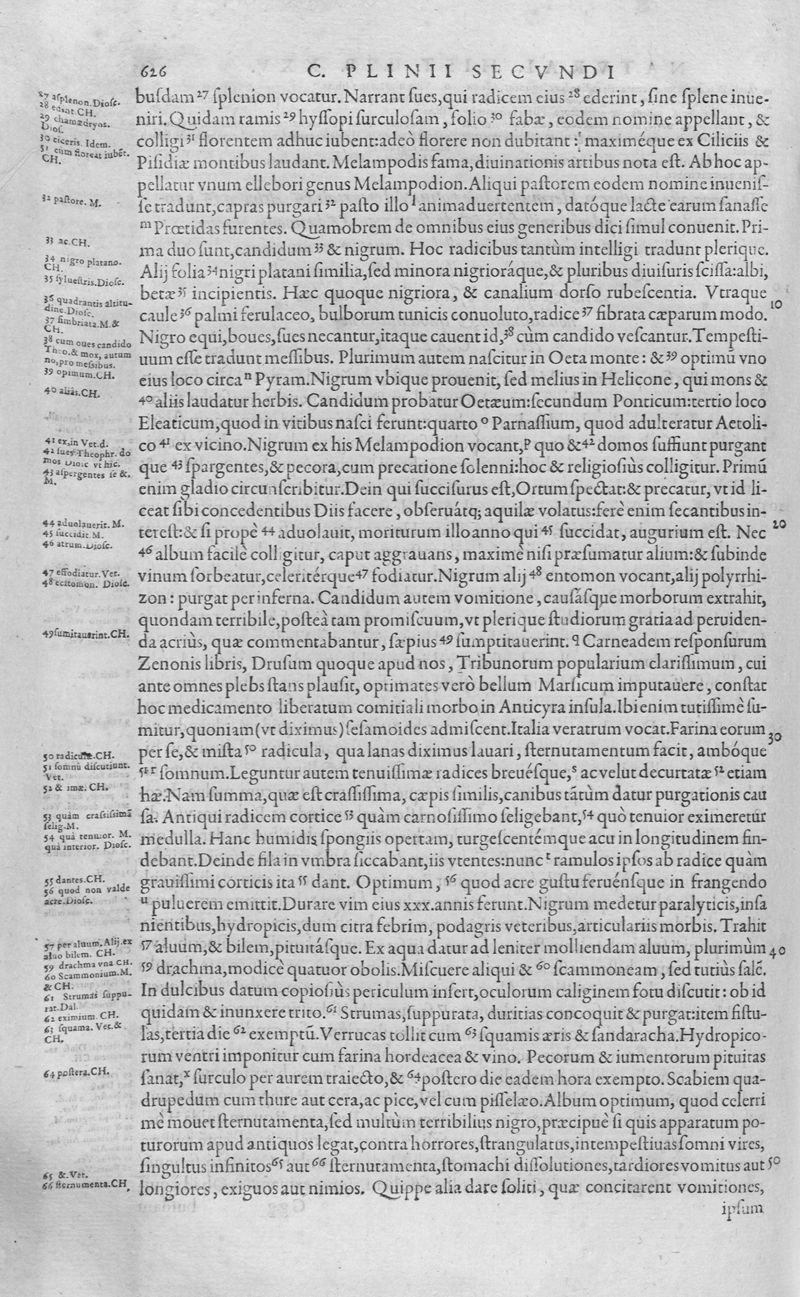 626 C. PLINII SECVNDI
busdam²⁷ splenion vocatur. Narrant sues, qui radicem eius ²⁸ ederint, sine splene inue-
niri. Quidam ramis ²⁹ hyssopi surculosam, folio ³⁰ fabæ, eodem nomine appellant, &
colligi ³¹ florentem adhuc iubent: adeò florere non dubitant: maximéque ex Ciliciis &
Pisidiæ montibus laudant. Melampodis fama, diuinationis artibus nota est. Ab hoc ap-
pellatur vnum ellebori genus Melampodion. Aliqui pastorem eodem nomine inuenis-
se tradunt, capras purgari ³² pasto illo ˡ animaduertentem, datóque lacte earum sanasse
ᵐ Prœtidas furentes. Quamobrem de omnibus eius generibus dici simul conuenit. Pri-
ma duo sunt, candidum ³³ & nigrum. Hoc radicibus tantùm intelligi tradunt plerique.
Alij folia ³⁴ nigri platani similia, sed minora nigrioráque, & pluribus diuisuris scissa: albi,
betæ ³⁵ incipientis. Hæc quoque nigriora, & canalium dorso rubescentia. Vtraque
10
caule ³⁶ palmi ferulaceo, bulborum tunicis conuoluto, radice ³⁷ fibrata cæparum modo.
Nigro equi, boues, sues necantur, itaque cauent id, ³⁸ cùm candido vescantur. Tempesti-
uum esse tradunt messibus. Plurimum autem nascitur in Oeta monte: & ³⁹ optimũ vno
eius loco circa ⁿ Pyram. Nigrum vbique prouenit, sed melius in Helicone, qui mons &
⁴⁰ aliis laudatur herbis. Candidum probatur Oetæum: secundum Ponticum: tertio loco
Eleaticum, quod in vitibus nasci ferunt: quarto ᵒ Parnassium, quod adulteratur Aetoli-
co ⁴¹ ex vicino. Nigrum ex his Melampodion vocant, ᵖ quo & ⁴² domos suffiunt purgant
que ⁴³ spargentes, & pecora, cum precatione solenni: hoc & religiosiùs colligitur. Primũ
enim gladio circunscribitur. Dein qui succisurus est, Ortum spectat: & precatur, vt id li-
ceat sibi concedentibus Diis facere, obseruátq; aquilæ volatus: ferè enim secantibus in-
terest: & si propè ⁴⁴ aduolauit, moriturum illo anno qui ⁴⁵ succidat, augurium est. Nec
20
⁴⁶ album facilè colligitur, caput aggrauans, maximè nisi præsumatur alium: & subinde
vinum sorbeatur, celeritérque ⁴⁷ fodiatur. Nigrum alij ⁴⁸ entomon vocant, alij polyrrhi-
zon: purgat per inferna. Candidum autem vomitione, causásque morborum extrahit,
quondam terribile, posteà tam promiscuum, vt plerique studiorum gratia ad peruiden-
da acriùs, quæ commentabantur, sæpius ⁴⁹ sumptitauerint. ᑫ Carneadem responsurum
Zenonis libris, Drusum quoque apud nos, Tribunorum popularium clarissimum, cui
ante omnes plebs stans plausit, optimates verò bellum Marsicum imputauere, constat
hoc medicamento liberatum comitiali morbo in Anticyra insula. Ibi enim tutissimè su-
mitur, quoniam (vt diximus) sesamoides admiscent. Italia veratrum vocat. Farina eorum
30
per se, & mista ⁵⁰ radicula, qua lanas diximus lauari, sternutamentum facit, ambóque
⁵¹ ʳ somnum. Leguntur autem tenuissimæ radices breuésque, ˢ ac velut decurtatæ ⁵² etiam
hæ. Nam summa, quæ est crassissima, cæpis similis, canibus tãtùm datur purgationis cau
sa. Antiqui radicem cortice ⁵³ quàm carnosissimo seligebant, ⁵⁴ quò tenuior eximeretur
medulla. Hanc humidis spongiis opertam, turgescentémque acu in longitudinem fin-
debant. Deinde fila in vmbra siccabant, iis vtentes: nunc ᵗ ramulos ipsos ab radice quàm
grauissimi corticis ita ⁵⁵ dant. Optimum, ⁵⁶ quod acre gustu feruénsque in frangendo
ᵘ puluerem emittit. Durare vim eius xxx. annis ferunt. Nigrum medetur paralyticis, insa
nientibus, hydropicis, dum citra febrim, podagris veteribus, articulariis morbis. Trahit
⁵⁷ aluum, & bilem, pituitásque. Ex aqua datur ad leniter molliendam aluum, plurimùm
40
⁵⁹ drachma, modicè quatuor obolis. Miscuere aliqui & ⁶⁰ scammoneam, sed tutiùs salẽ.
In dulcibus datum copiosiùs periculum infert, oculorum caliginem fotu discutit: ob id
quidam & inunxere trito. ⁶¹ Strumas, suppurata, duritias concoquit & purgat: item fistu-
las, tertia die ⁶² exemptũ. Verrucas tollit cum ⁶³ squamis æris & sandaracha. Hydropico-
rum ventri imponitur cum farina hordeacea & vino. Pecorum & iumentorum pituitas
sanat, ˣ surculo per aurem traiecto, & ⁶⁴ postero die eadem hora exempto. Scabiem qua-
drupedum cum thure aut cera, ac pice, vel cum pisselæo. Album optimum, quod celerri
mè mouet sternutamenta, sed multùm terribilius nigro, præcipuè si quis apparatum po-
turorum apud antiquos legat, contra horrores, strangulatus, intempestiuas somni vires,
singultus infinitos ⁶⁵ aut ⁶⁶ sternutamenta, stomachi dissolutiones, tardiores vomitus aut
50
longiores, exiguos aut nimios. Quippe alia dare soliti, quæ concitarent vomitiones,
ipsum
27 asplenon. Diosc.
28 edant. CH.
29 chamædryos.
Diosc.
30 ciceris. Idem.
31 cum floreat iubẽt.
CH.
32 pastore. M.
33 ac. CH.
34 nigro platano.
CH.
35 syluestris. Diosc.
36 quadrantis altitu-
dine. Diosc.
37 fimbriata. M. &
CH.
38 cum oues candido
Theo. & mox, autum
no, pro messibus.
39 opimum. CH.
40 aliàs. CH.
41 ex, in Vet. d.
42 sues Theophr. do
mos Diosc vt hic.
43 aspergentes se &.
M.
44 aduolauerit. M.
45 succidit. M.
46 atrum. Diosc.
47 effodiatur. Vet.
48 ectomon. Diosc.
49 sumitauerint. CH.
50 radicula. CH.
51 somnũ discutiunt.
Vet.
52 & imæ. CH.
53 quàm crassissimã
selig. M.
54 quà tenuior. M.
quà interior. Diosc.
55 dantes. CH.
56 quod non valde
acre. Diosc.
57 per aluum. Alij, ex
aluo bilem. CH.
59 drachma vna. CH.
60 Scammonium. M.
& CH.
61 Strumas suppu-
rat. Dal.
62 eximium. CH.
63 squama. Vet. &
CH.
64 postera. CH.
65 &. Vet.
66 sternumenta. CH.